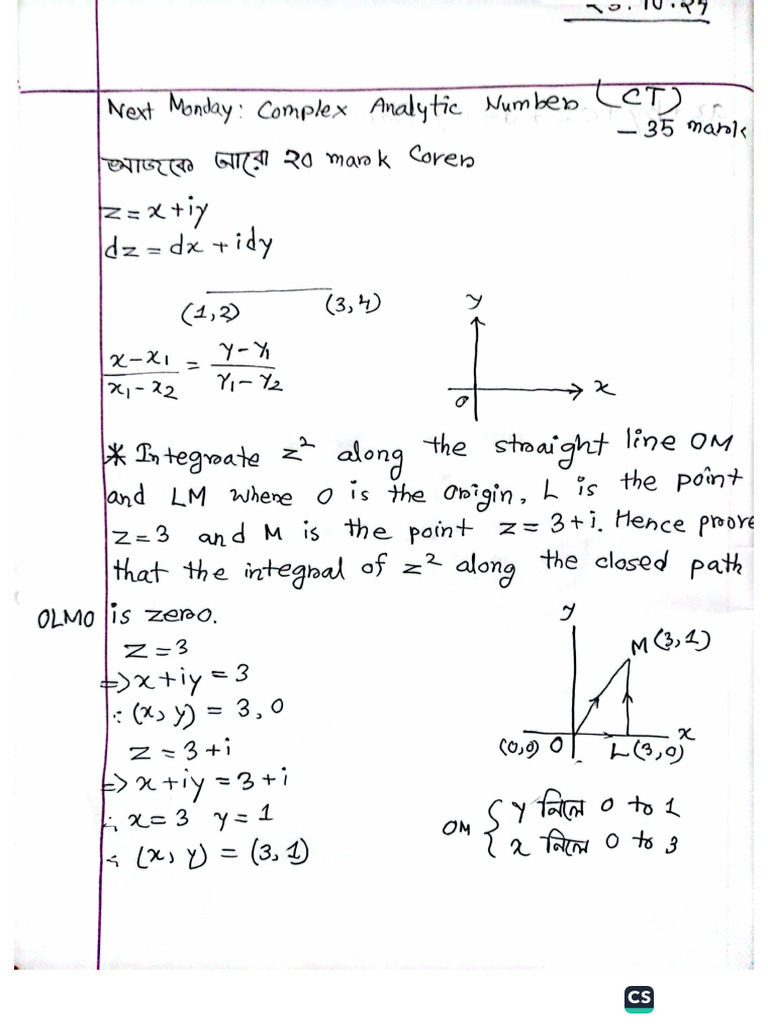 20.10.24
Next Monday: Complex Analytic Number (CT)
– 35 mark
আজকে আরো 20 mark Cover
z = x + iy
dz = dx + idy
(1,2) (3,4)
y
x
0
x - x₁ / x₁ - x₂ = y - y₁ / y₁ - y₂
* Integrate z² along the straight line OM
and LM where O is the origin, L is the point
z = 3 and M is the point z = 3 + i. Hence prove
that the integral of z² along the closed path
OLMO is zero.
z = 3
=> x + iy = 3
∴ (x, y) = 3, 0
z = 3 + i
=> x + iy = 3 + i
∴ x = 3 y = 1
∴ (x, y) = (3, 1)
y
M (3, 1)
x
(0,0) O L (3, 0)
OM { y নিলে 0 to 1
x নিলে 0 to 3
CS